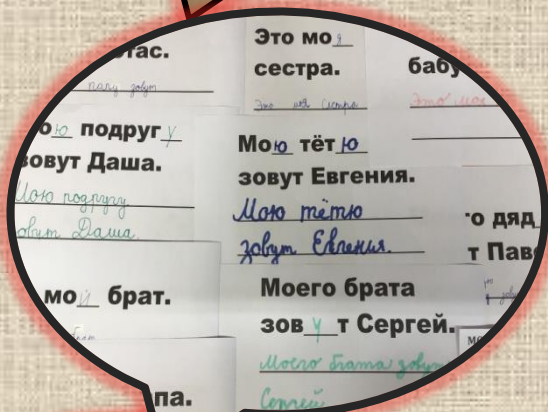 стас.
папу зовут
Это моя
сестра.
Это моя сестра
бабу
Это моя
ою подругу
зовут Даша.
Мою подругу
зовут Даша
Мою тётю
зовут Евгения.
Мою тётю
зовут Евгения.
о дяд
т Пав
мой брат.
Моего брата
зовут Сергей.
Моего брата зовут
Сергей
па.